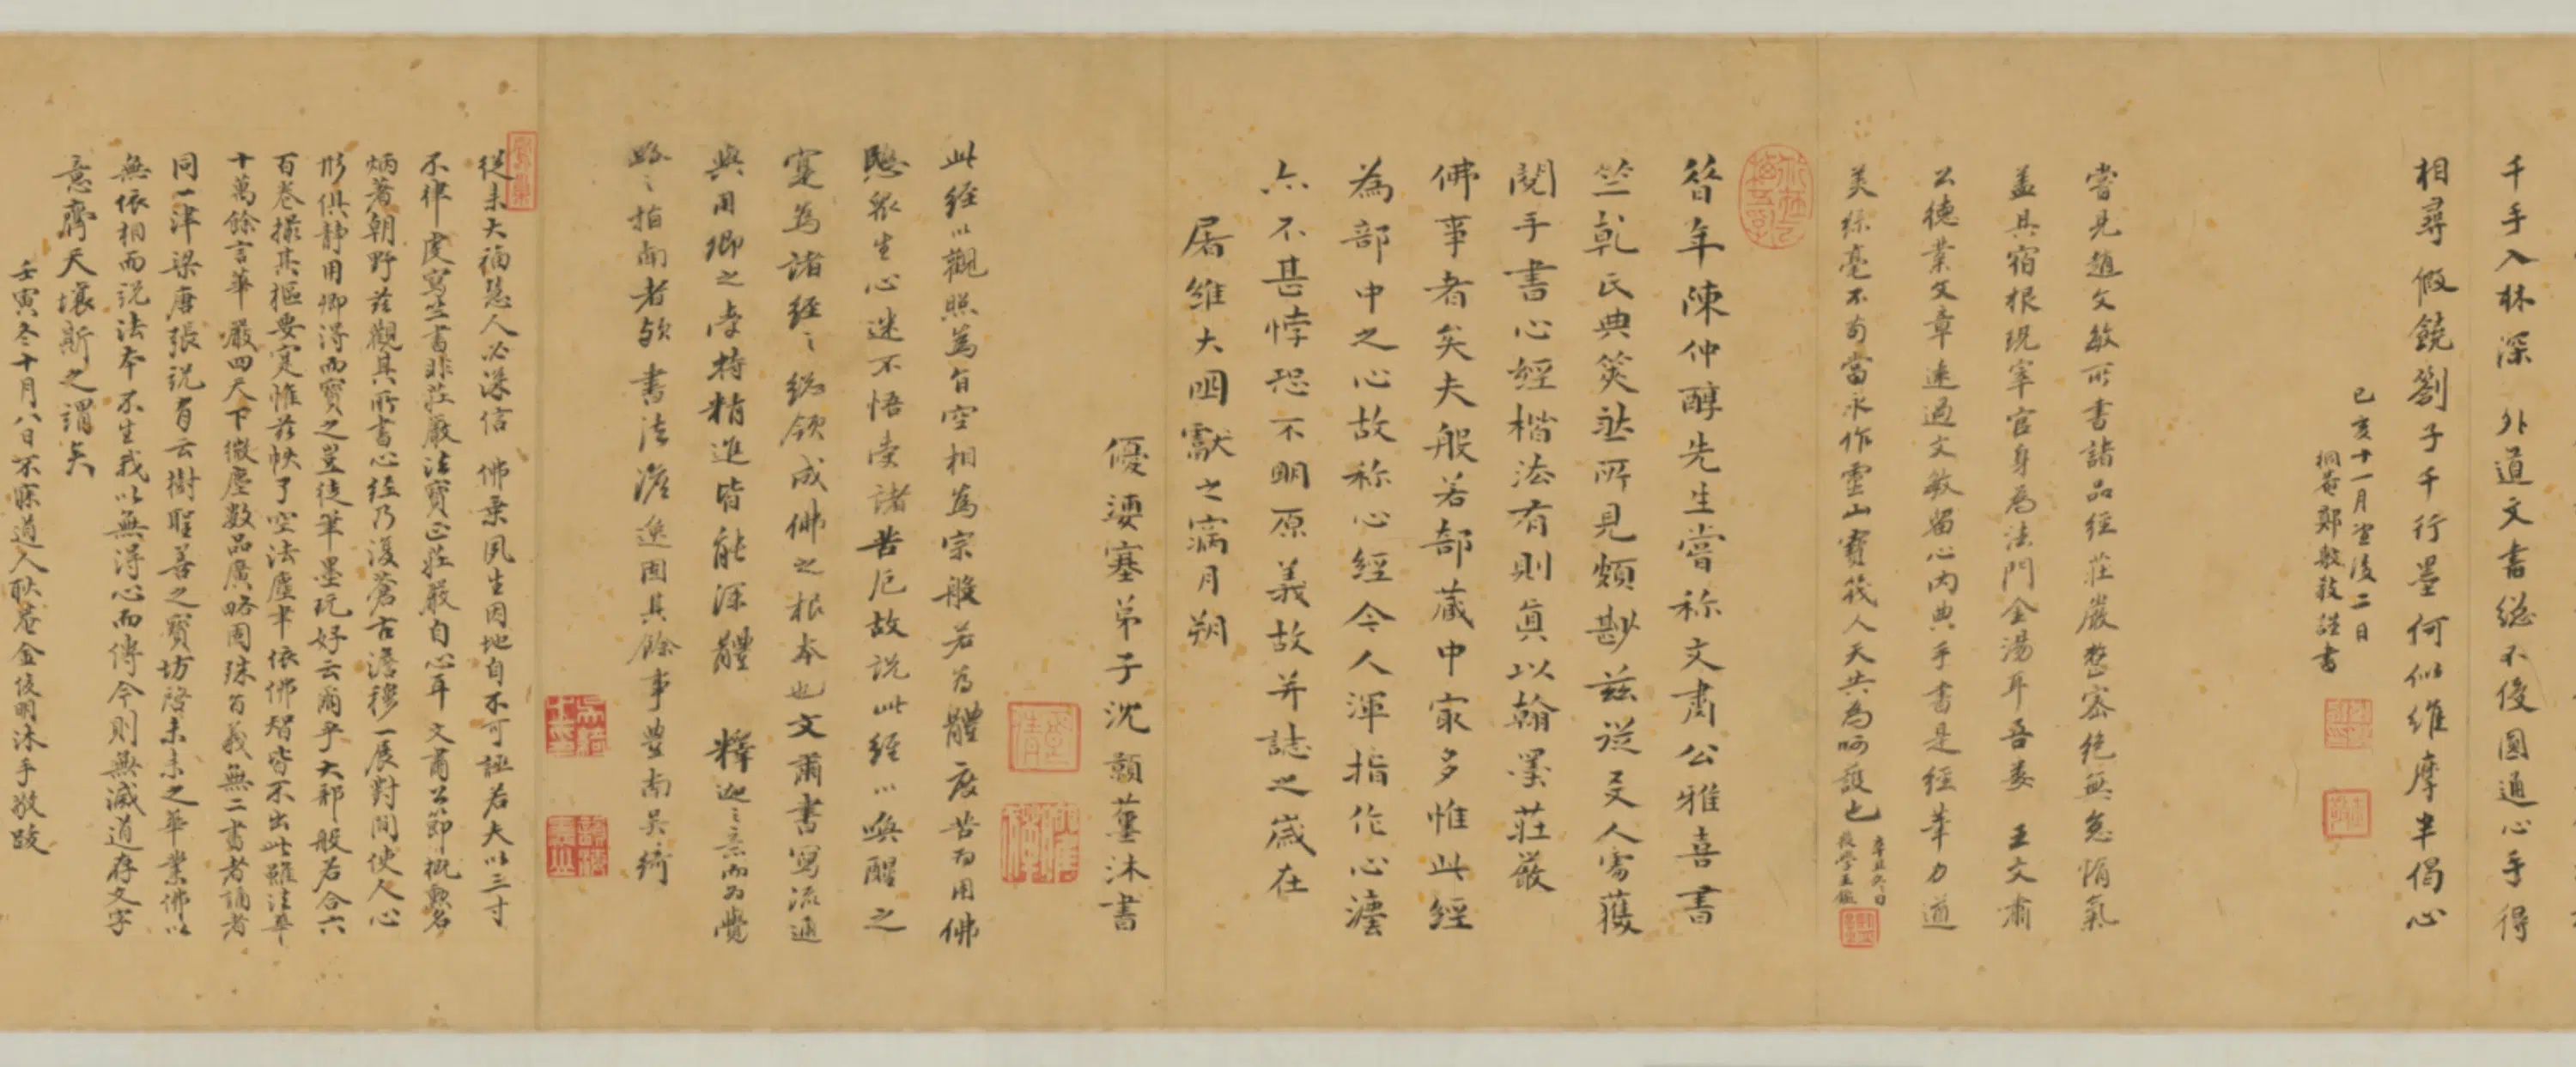 千手入林深外道文書總不後圓通心手得
相尋假饒劉子千行墨何似維摩半偈心
己亥十一月望後二日
桐菴鄭敷教謹書
嘗見趙文敏所書諸品經莊嚴整密絕無怠惰氣
蓋其宿根現宰官身為法門金湯耳吾婁王文肅
公德業文章遠過文敏留心內典手書是經筆力遒
美絲毫不苟當永作靈山寶筏人天共為呵護也
後學王鑑
昔年陳仲醇先生嘗称文肅公雅喜書
竺乾氏典筴然所見頗尠茲從友人寓獲
閱手書心經楷法有則真以翰墨莊嚴
佛事者矣夫般若部藏中最多惟此經
為部中之心故称心經今人渾指作心法
亦不甚悖恐不明原義故并誌之歲在
屠維大淵獻之窩月朔
優婆塞弟子沈顥薰沐書
此經以觀照為旨空相為宗般若為體度苦為用佛
愍眾生心迷不悟受諸苦厄故說此經以喚醒之
寔為諸經之總領成佛之根本也文肅書寫流通
與用卿之受持精進皆能深體釋迦之意而為覺
路之指南者歟書法澹逸固其餘事豊南吳綺
從未大福慧人必深信佛乘夙生因地自不可誣若夫以三寸
不律虔寫竺書非莊嚴法寶正莊嚴自心耳文肅公節概勳名
炳著朝野茲觀其所書心經乃復蒼古澹穆一展對間使人心
形俱靜用卿得而寶之豈徒筆墨玩好云爾乎大部般若合六
百卷撮其樞要寔惟茲帙了空法塵聿依佛智皆不出此雖法華
十萬餘言華嚴四天下微塵數品廣略固殊旨義無二書者誦者
同一津梁唐張說有云樹聖善之寶坊啓未來之華業佛以
無依相而說法本不生我以無得心而傳今則無滅道存文字
意齊天壤斯之謂矣
壬寅冬十月八日不寐道人耿菴金俊明沐手敬跋